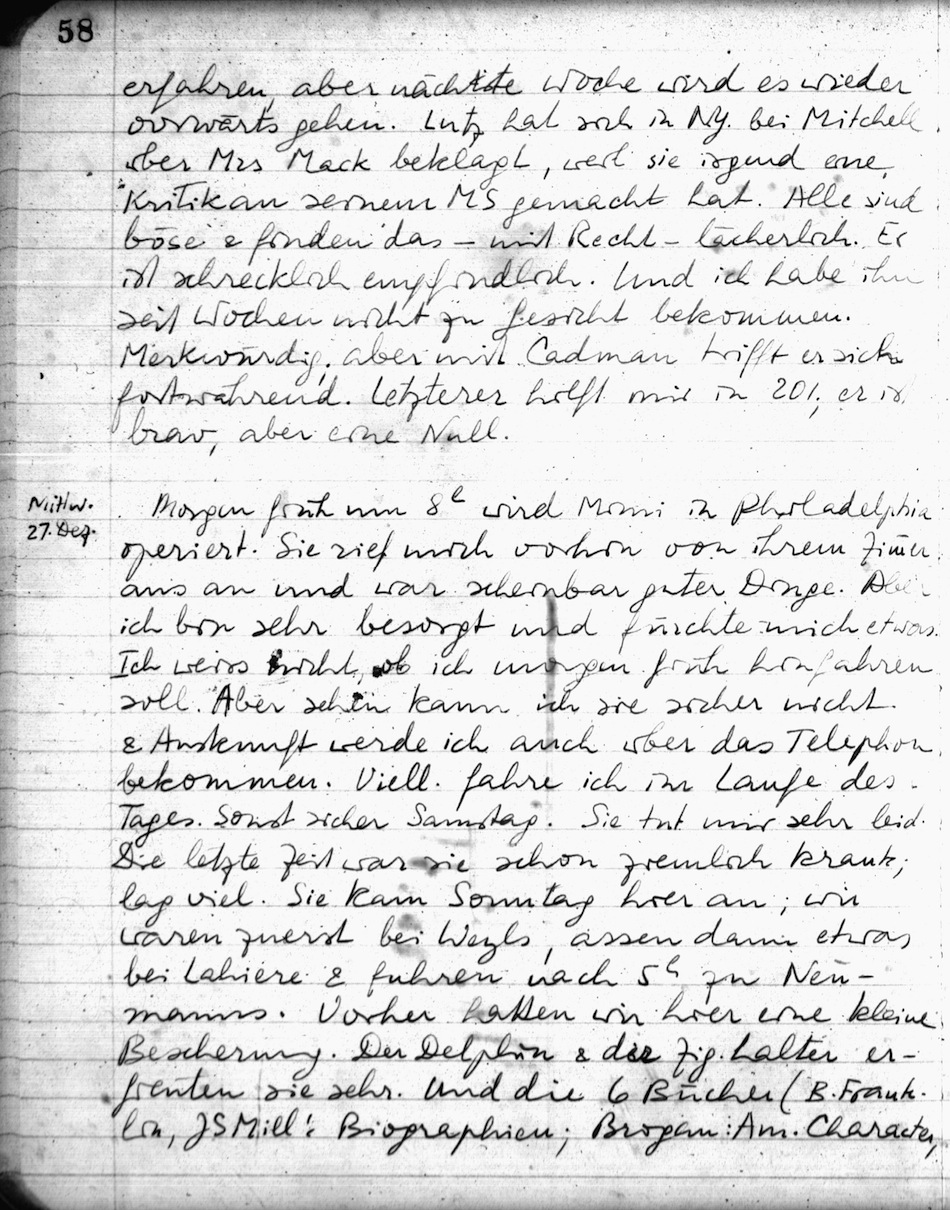 58
erfahren, aber nächste Woche wird es wieder
vorwärts gehen. Lutz hat sich in NY. bei Mitchell
über Mrs Mack beklagt, weil sie irgend eine
Kritik an seinem MS gemacht hat. Alle sind
böse & finden das – mit Recht – lächerlich. Er
ist schrecklich empfindlich. Und ich habe ihn
seit Wochen nicht zu Gesicht bekommen.
Merkwürdig, aber mit Cadman trifft er sich
fortwährend. Letzterer hilft mir in 201, er ist
brav, aber eine Null.
Mittw.
27. Dez.
Morgen früh um 8h wird Mimi in Philadelphia
operiert. Sie rief mich vorhin von ihrem Zimmer
aus an und war scheinbar guter Dinge. Aber
ich bin sehr besorgt und fürchte mich etwas.
Ich weiss nicht, ob ich morgen früh hinfahren
soll. Aber sehen kann ich sie sicher nicht
& Auskunft werde ich auch über das Telephon
bekommen. Viell. fahre ich im Laufe des
Tages. Sonst sicher Samstag. Sie tut mir sehr leid.
Die letzte Zeit war sie schon ziemlich krank;
lag viel. Sie kam Sonntag hier an; wir
waren zuerst bei Weyls, assen dann etwas
bei Lahière & fuhren nach 5h zu Neu-
manns. Vorher hatten wir hier eine kleine
Bescherung. Der Delphin & der Zig.halter er-
freuten sie sehr. Und die 6 Bücher (B. Frank-
lin, JS Mill: Biographien; Brogan: Am. Character,